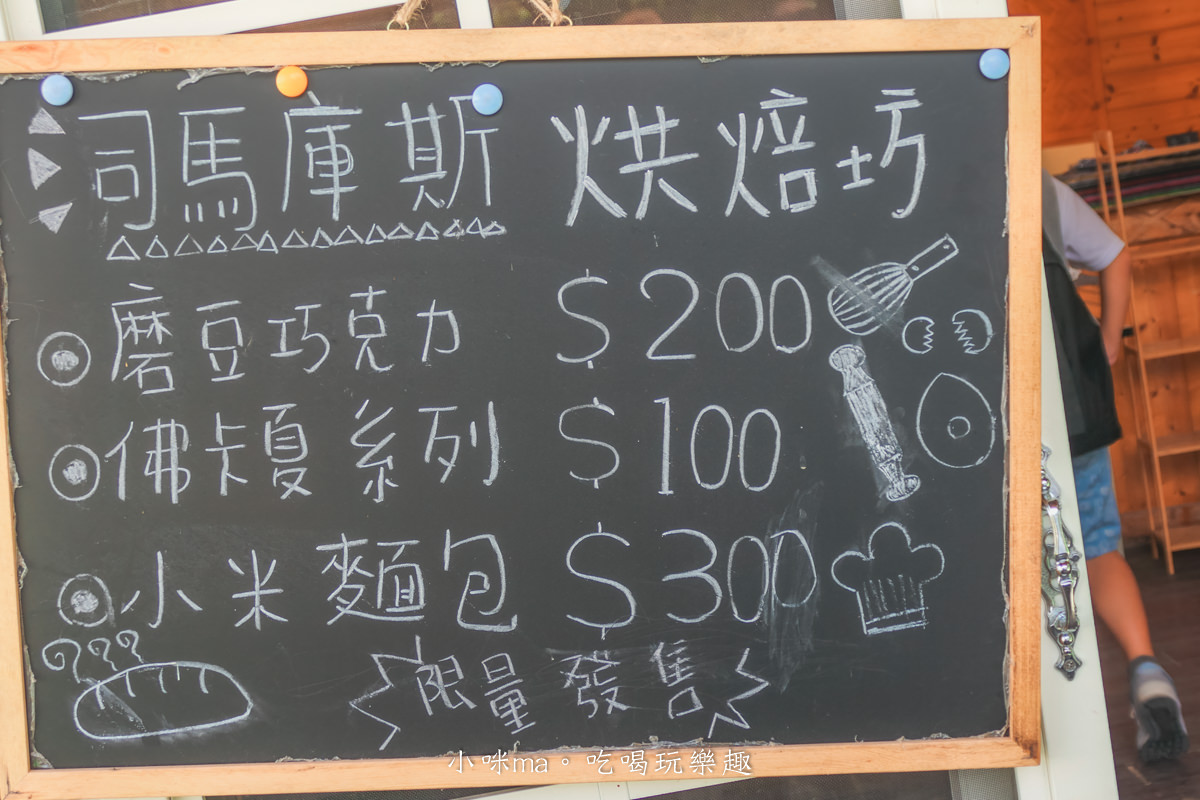 司馬庫斯 烘焙坊
磨豆巧克力 $200
佛卡夏系列 $100
小米麵包 $300
限量發售
小咪ma。吃喝玩樂趣